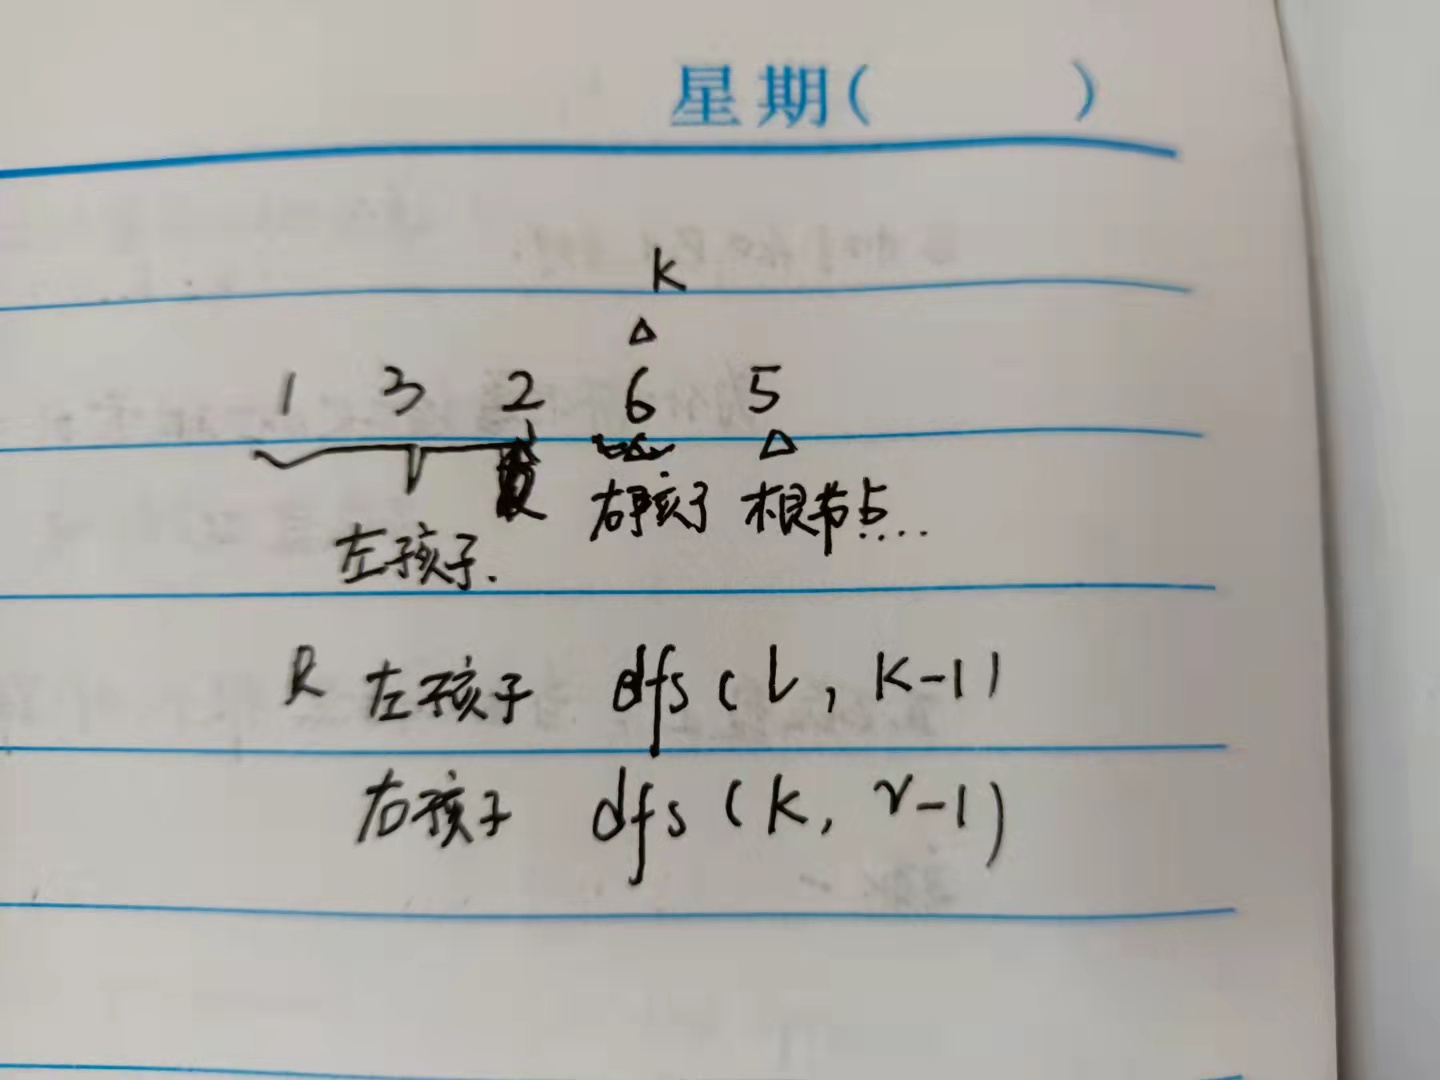 星期( )
K
△
1 3 2 6 5
△
右孩子 根节点....
左孩子.
R 左孩子 dfs(l, K-1)
右孩子 dfs(K, r-1)